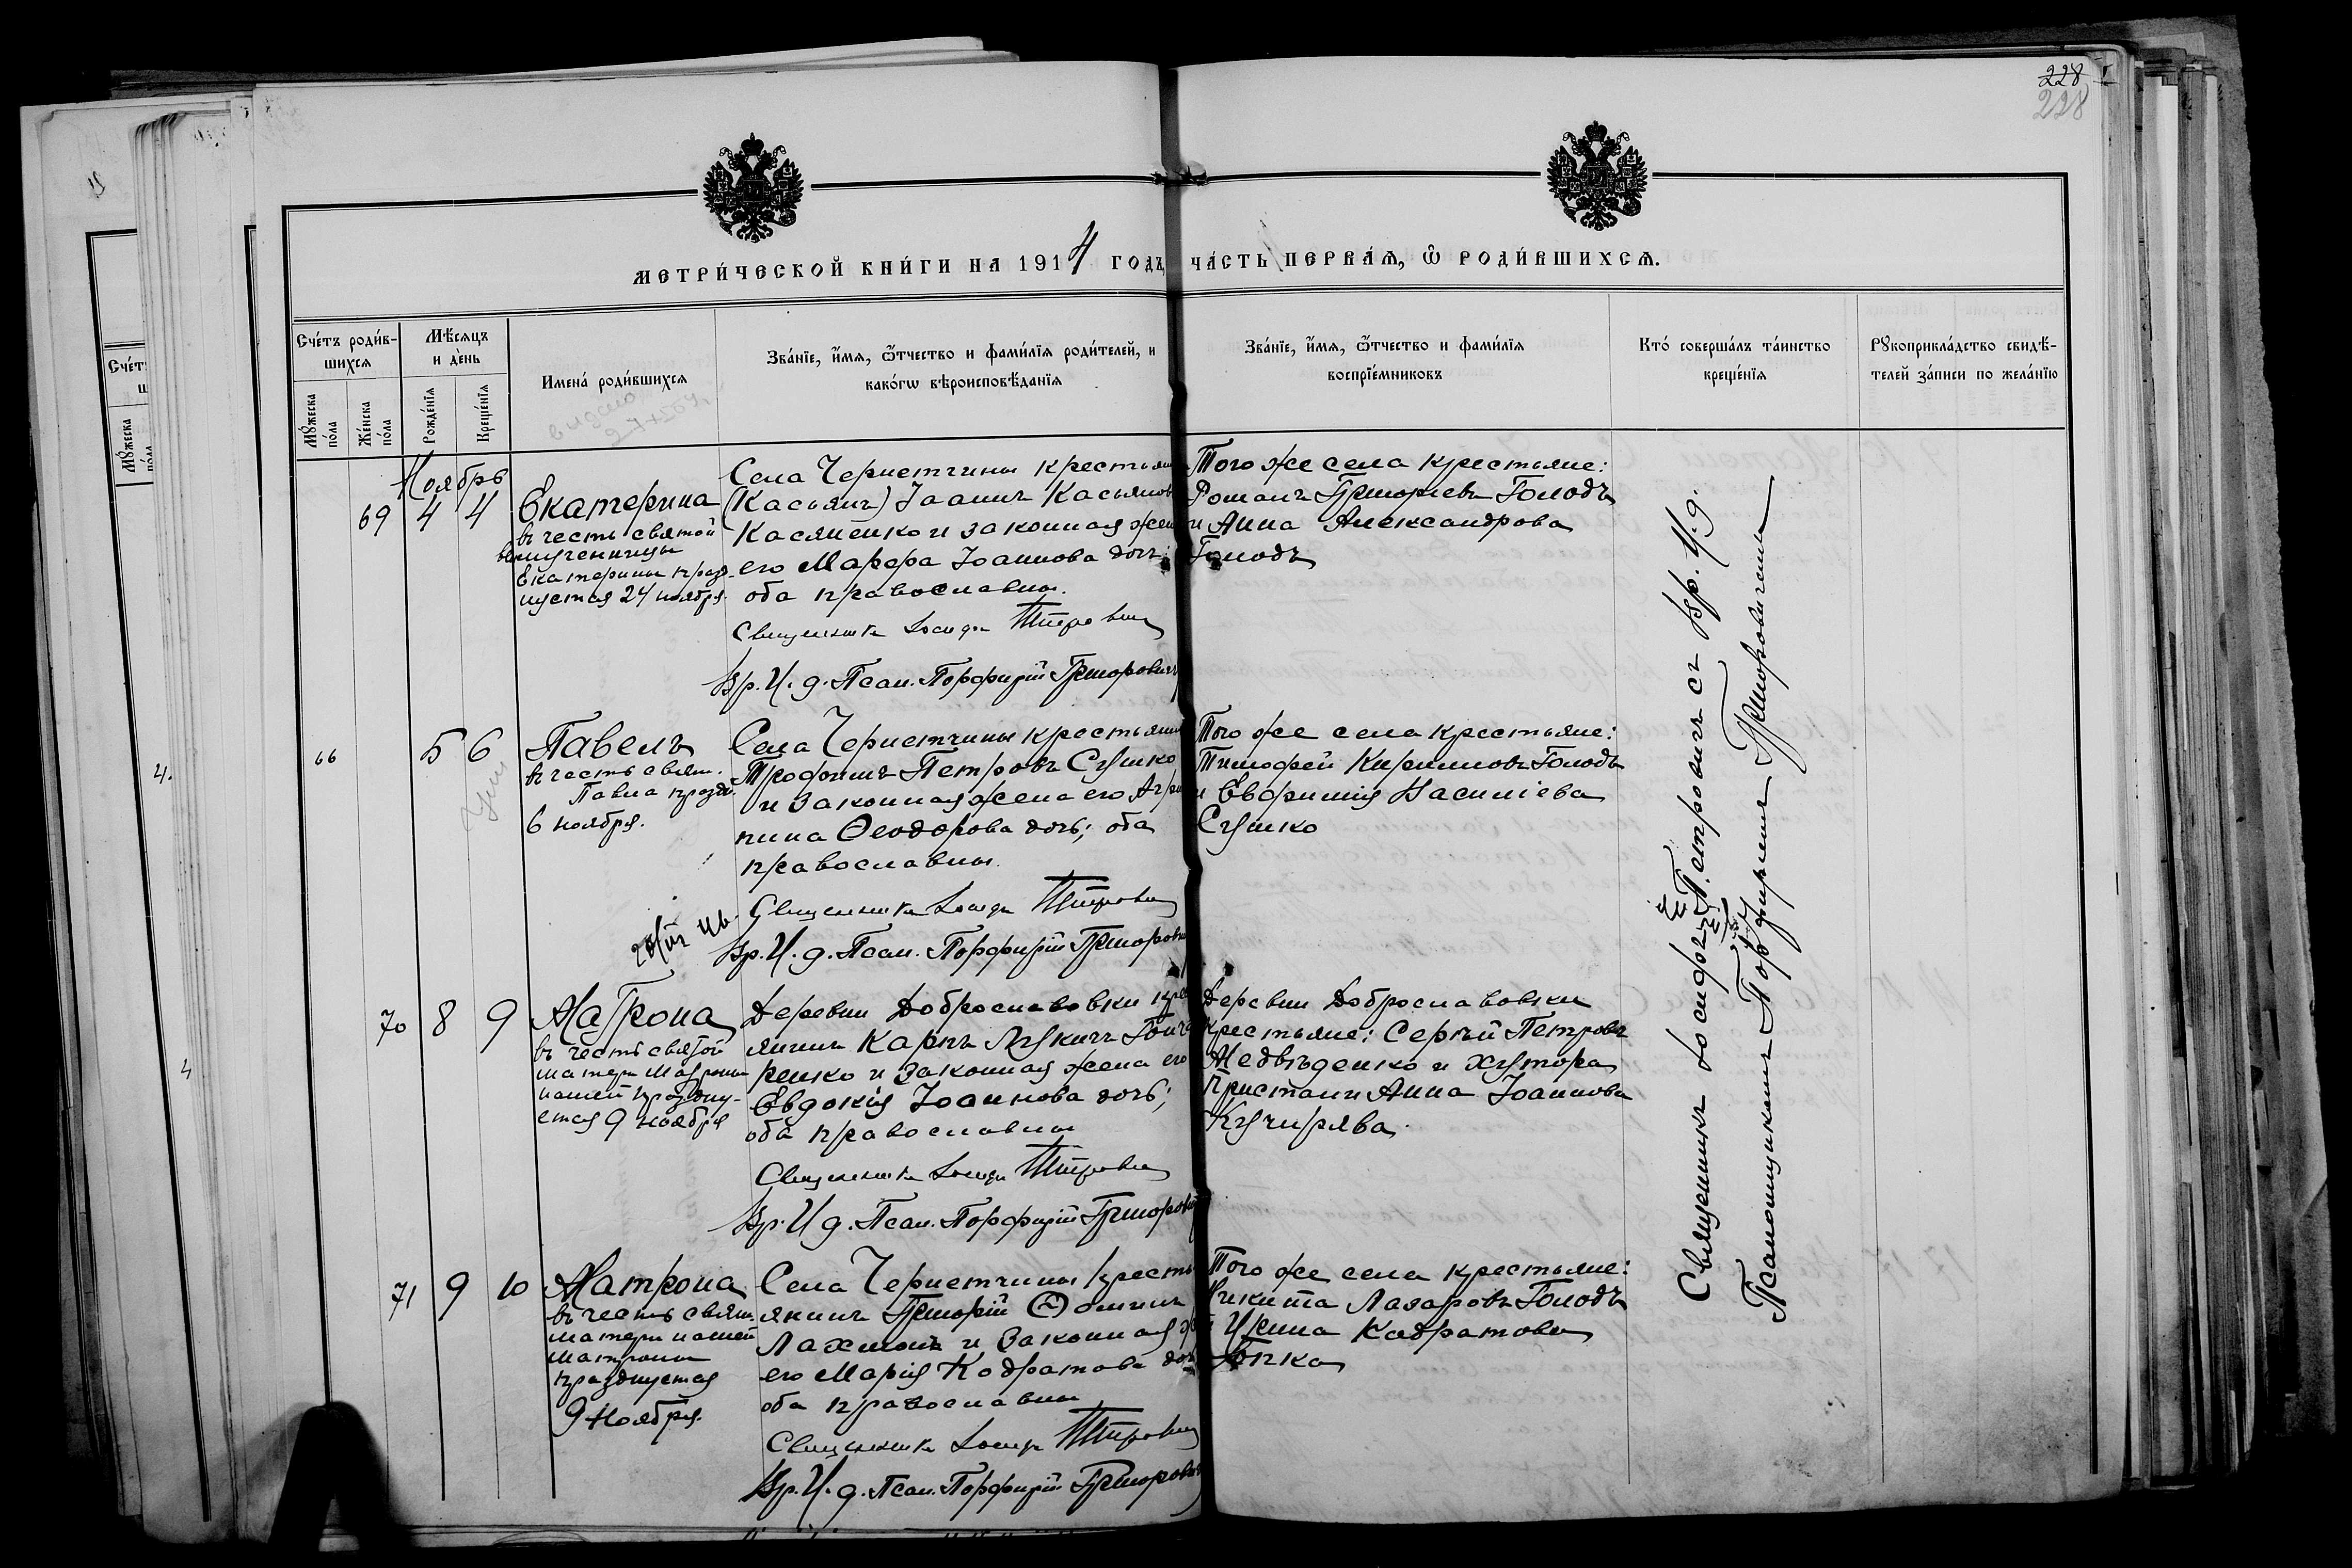 228
228
МЕТРИ́ЧЕСКОЙ КНИ́ГИ НА 1914 ГОДЪ, ЧА́СТЬ ПЕРВАѦ, Ѡ РОДИ́ВШИХСѦ.
Сче́тъ роди́в-
шихсѧ
Мꙋ́жеска по́ла
Же́нска по́ла
Мѣ́сѧцъ
и де́нь
Рожде́нїѧ
Креще́нїѧ
Имена̀ роди́вшихсѧ
Зва́нїе, и́мѧ, ѻ́тчество и фами́лїѧ роди́телей, и
како́гѡ вѣроисповѣ́данїѧ
Зва́нїе, и́мѧ, ѻ́тчество и фами́лїѧ
воспрїе́мниковъ
Кто̀ соверша́лъ та́инство
креще́нїѧ
Рꙋкоприкла́дство свидѣ́-
телей за́писи по жела́нїю
Ноябрь
69 4 4
Екатерина
въ честь святой
великомученицы
Екатерины празд-
нуется 24 ноября.
Села Чернетчины крестьянинъ
(Касьянъ) Іоаннъ Касьяновъ
Касяненко и законная жена
его Марѳа Іоаннова дочь;
оба православны.
Священникъ Іосифъ Петровичъ
Вр. И. д. Псал. Порфирій Григоровичъ
Того же села крестьяне:
Романъ Григорьевъ Голодъ
и Анна Александрова
Голодъ
66 5 6
Павелъ
въ честь свят.
Павла праздн.
6 ноября.
Села Чернетчины крестьянинъ
Трофимъ Петровъ Сушко
и законная жена его Агри-
пина Ѳеодорова дочь; оба
православны.
Священникъ Іосифъ Петровичъ
Вр. И. д. Псал. Порфирій Григоровичъ
Того же села крестьяне:
Тимофей Кирилловъ Голодъ
и Евфимія Васильева
Сушко
70 8 9
Матрона
въ честь святой
матери Матроны
нашей праздну-
ется 9 ноября
Деревни Доброславовки крес
янинъ Карпъ Лукичъ Гонча
ренко и законная жена его
Евдокія Іоаннова дочь;
оба православны
Священникъ Іосифъ Петровичъ
Вр. И д. Псал. Порфирій Григоровичъ
Деревни Доброславовки
крестьяне: Сергѣй Петровъ
Медвѣденко и хутора
Пристани Анна Іоаннова
Кучирява.
71 9 10
Матрона
въ честь свят.
матери нашей
Матроны
празднуется
9 Ноября.
Села Чернетчины кресть
янинъ Григорій Ѳоминъ
Лахманъ и законная жена
его Марія Кодратова дочь
оба православны
Священникъ Іосифъ Петровичъ
Вр. И. д. Псал. Порфирій Григоровичъ
Того же села крестьяне:
Никита Лазаровъ Голодъ
и Ирина Кодратова
Священникъ Іосифъ Петровичъ съ Вр. И. д.
Псаломщикомъ Порфиріемъ Григоровичемъ